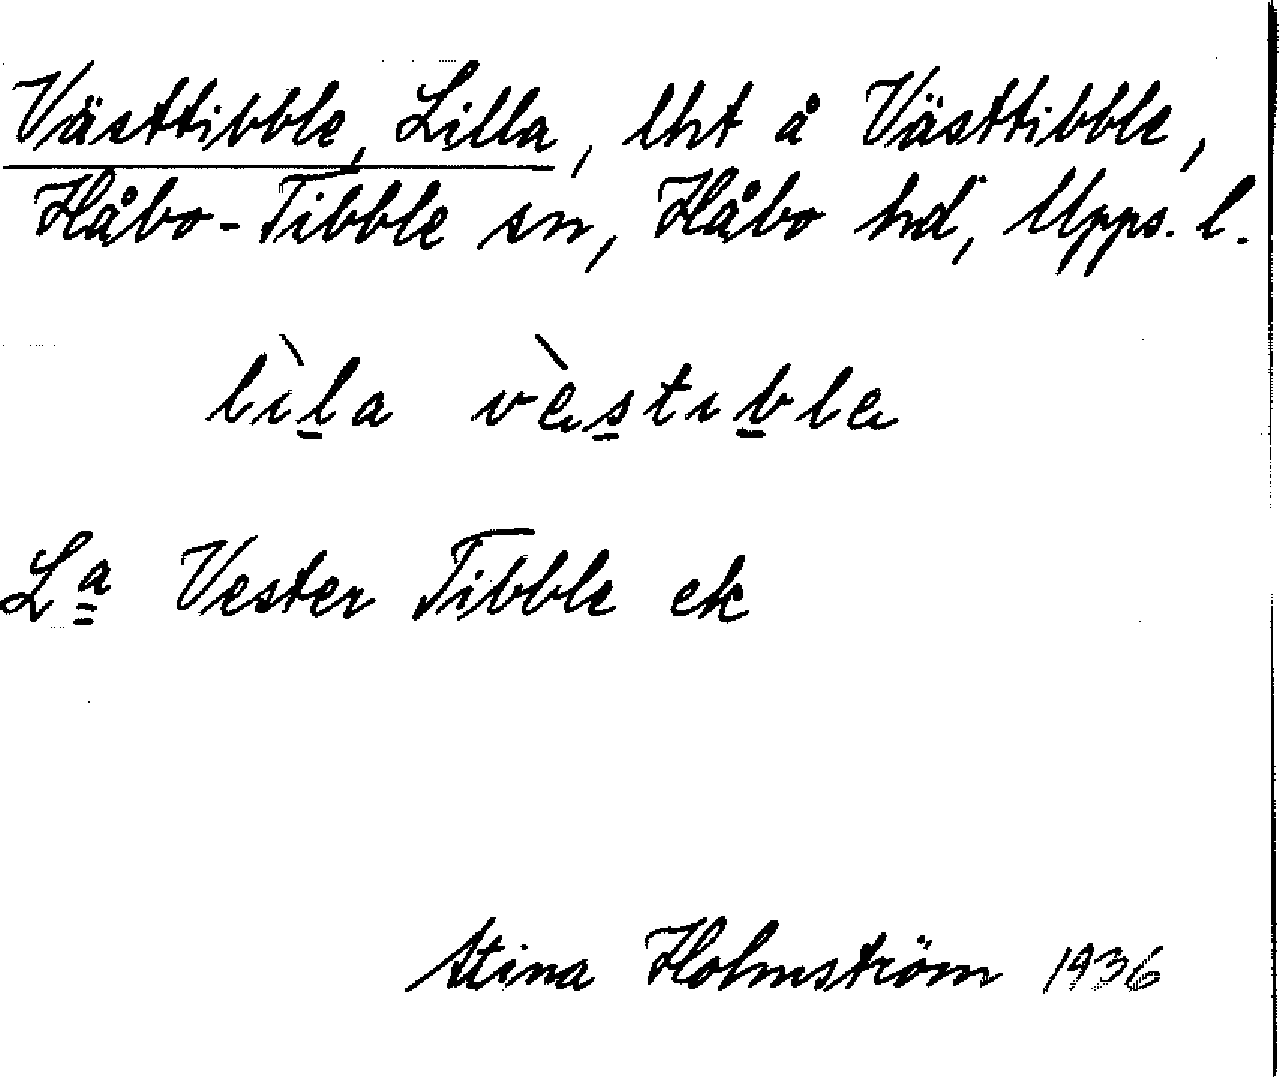 Västtibble, Lilla, lht å Västtibble,
Håbo-Tibble sn, Håbo hd, Upps. l.
lìl̲a vès̲tıb̲le
Lª Vester Tibble ek
Stina Holmström 1936